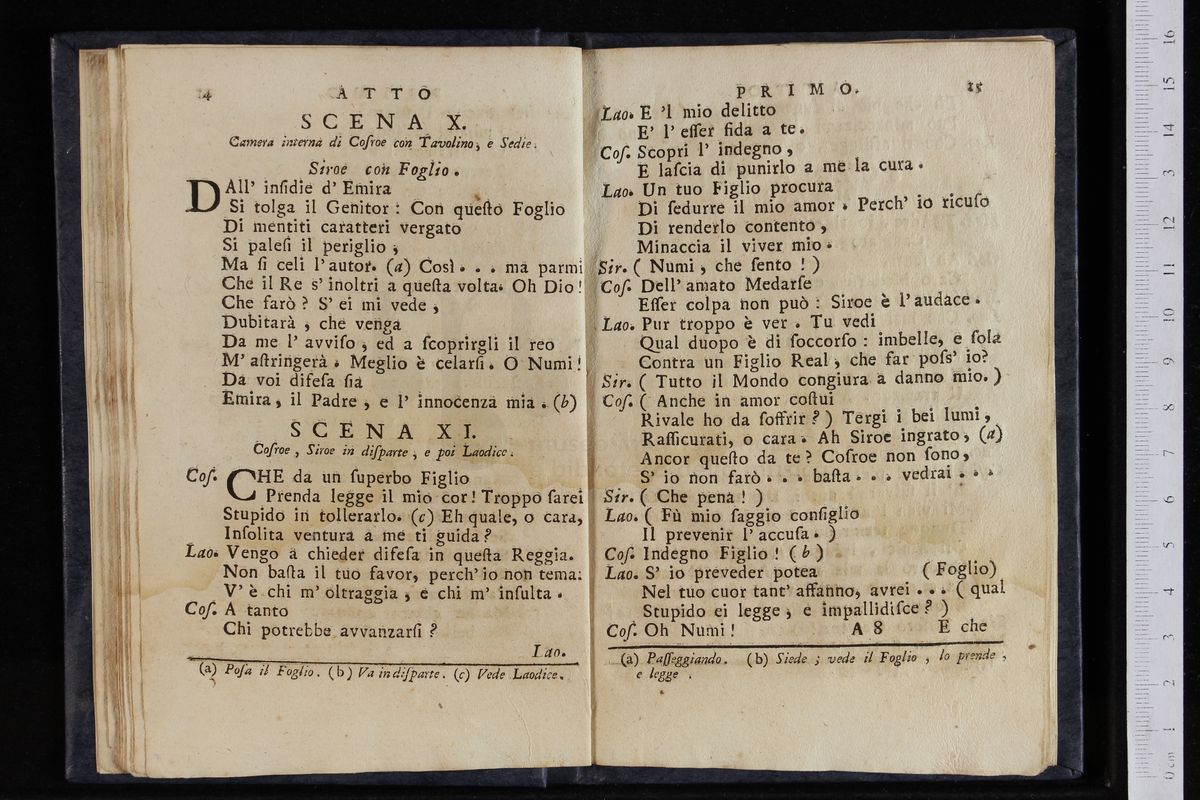 14 ATTO
SCENA X.
Camera interna di Coſroe con Tavolino, e Sedie.
Siroe con Foglio.
DAll' inſidie d' Emira
Si tolga il Genitor : Con queſto Foglio
Di mentiti caratteri vergato
Si paleſi il periglio ,
Ma ſi celi l'autor. (a) Così . . . ma parmi
Che il Re s' inoltri a queſta volta. Oh Dio!
Che farò ? S' ei mi vede ,
Dubitarà , che venga
Da me l' avviſo , ed a ſcoprirgli il reo
M' aſtringerà . Meglio è celarſi . O Numi!
Da voi difeſa ſia
Emira , il Padre , e l' innocenza mia . (b)
SCENA XI.
Coſroe , Siroe in diſparte , e poi Laodice .
Coſ. CHE da un ſuperbo Figlio
Prenda legge il mio cor! Troppo ſarei
Stupido in tollerarlo. (c) Eh quale, o cara,
Inſolita ventura a me ti guida ?
Lao. Vengo a chieder difeſa in queſta Reggia.
Non baſta il tuo favor, perch' io non tema:
V' è chi m' oltraggia , e chi m' inſulta .
Coſ. A tanto
Chi potrebbe avvanzarſi ?
Lao.
(a) Poſa il Foglio. (b) Va in diſparte. (c) Vede Laodice.
PRIMO. 15
Lao. E 'l mio delitto
E' l' eſſer fida a te.
Coſ. Scopri l' indegno ,
E laſcia di punirlo a me la cura .
Lao. Un tuo Figlio procura
Di ſedurre il mio amor . Perch' io ricuſo
Di renderlo contento ,
Minaccia il viver mio .
Sir. ( Numi , che ſento ! )
Coſ. Dell' amato Medarſe
Eſſer colpa non può : Siroe è l'audace .
Lao. Pur troppo è ver . Tu vedi
Qual duopo è di ſoccorſo : imbelle, e ſola
Contra un Figlio Real , che far poſs' io?
Sir. ( Tutto il Mondo congiura a danno mio. )
Coſ. ( Anche in amor coſtui
Rivale ho da ſoffrir ? ) Tergi i bei lumi ,
Raſſicurati, o cara . Ah Siroe ingrato , (a)
Ancor queſto da te ? Coſroe non ſono,
S' io non farò . . . baſta . . . vedrai . . .
Sir. ( Che pena ! )
Lao. ( Fù mio ſaggio conſiglio
Il prevenir l' accuſa . )
Coſ. Indegno Figlio ! ( b )
Lao. S' io preveder potea ( Foglio)
Nel tuo cuor tant' affanno, avrei . . . ( qual
Stupido ei legge , e impallidiſce ? )
Coſ. Oh Numi ! A 8 E che
(a) Paſſeggiando. (b) Siede ; vede il Foglio , lo prende ,
e legge .
0 cm 1 2 3 4 5 6 7 8 9 10 11 12 13 14 15 16